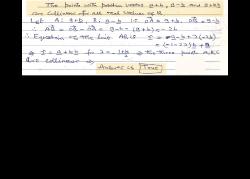 The points with position vectors a+b, a-b and a+kb
are collinear for all real values of k.
Let A: a+b, B: a-b i.e. OA = a+b, OB = a-b
∴ AB = OB - OA = a-b-(a+b) = -2b
∴ Equation of the line AB is r = a-b+λ(-2b)
= (-1-2λ)b + a
r = a+kb for λ = the three points A, B, C
are collinear
Answer is True